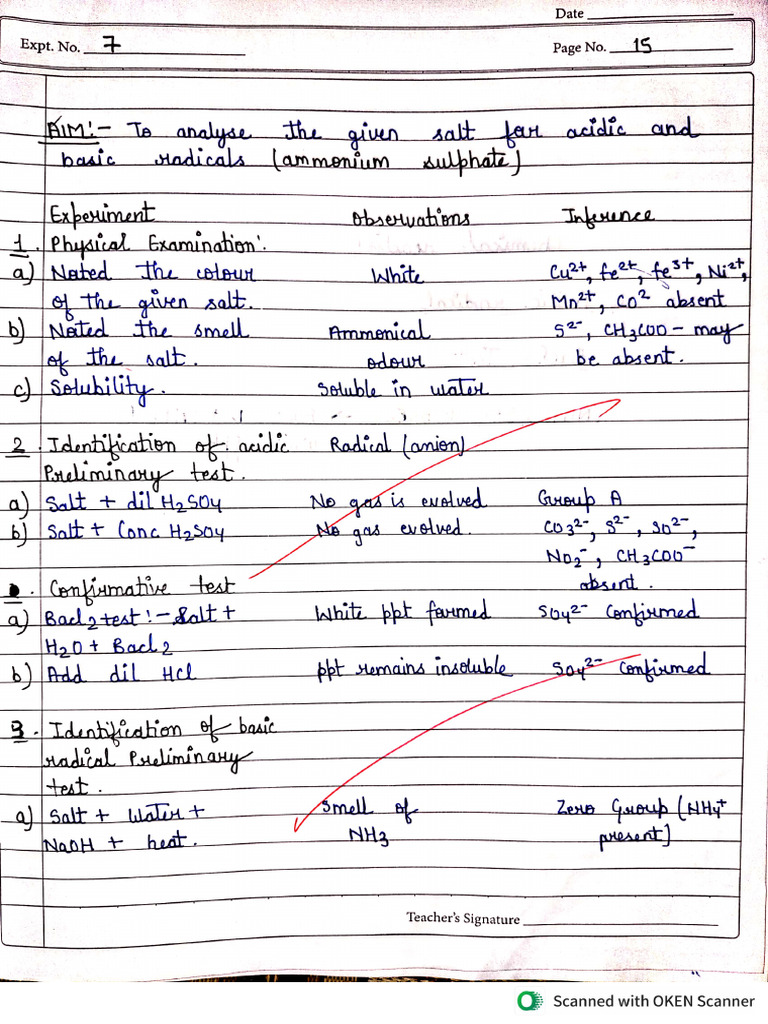 Date
Expt. No. 7
Page No. 15
AIM:- To analyse the given salt for acidic and
basic radicals (ammonium sulphate)
Experiment Observations Inference
1. Physical Examination:
a) Noted the colour White Cu2+, fe2+, fe3+, Ni2+,
of the given salt. Mn2+, CO2 absent
b) Noted the smell Ammonical S2-, CH3COO- may
of the salt. odour be absent.
c) Solubility. Soluble in water
2. Identification of acidic Radical (anion)
Preliminary test.
a) Salt + dil H2SO4 No gas is evolved Group A
b) Salt + Conc H2SO4 No gas evolved. CO3 2-, S2-, SO2-,
NO2-, CH3COO-
Confirmative test absent.
a) Bacl2 test:- Salt + White ppt formed SO4 2- Confirmed
H2O + Bacl2
b) Add dil HCl ppt remains insoluble SO4 2- Confirmed
3. Identification of basic
radical Preliminary
test.
a) Salt + Water + Smell of Zero Group (NH4+
NaOH + heat. NH3 present)
Teacher's Signature
Scanned with OKEN Scanner